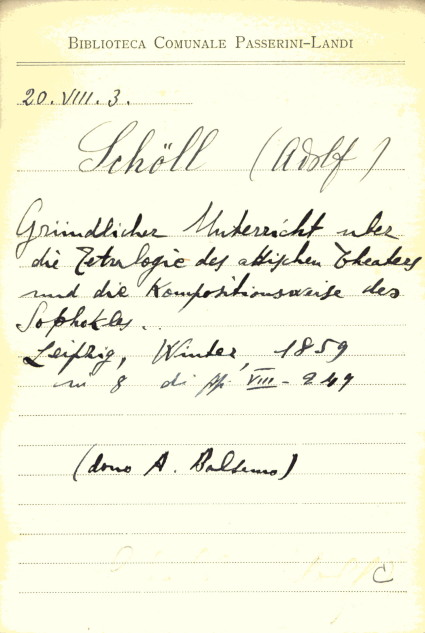 BIBLIOTECA COMUNALE PASSERINI-LANDI
20. VIII. 3.
Schöll (Adolf)
Gründlicher Unterricht uber
die Tetralogie des attischen Theaters
und die Kompositionsweise des
Sophokles..
Leipzig, Winter, 1859
in 8 di pp. VIII-249
(dono A. Balsamo)
C